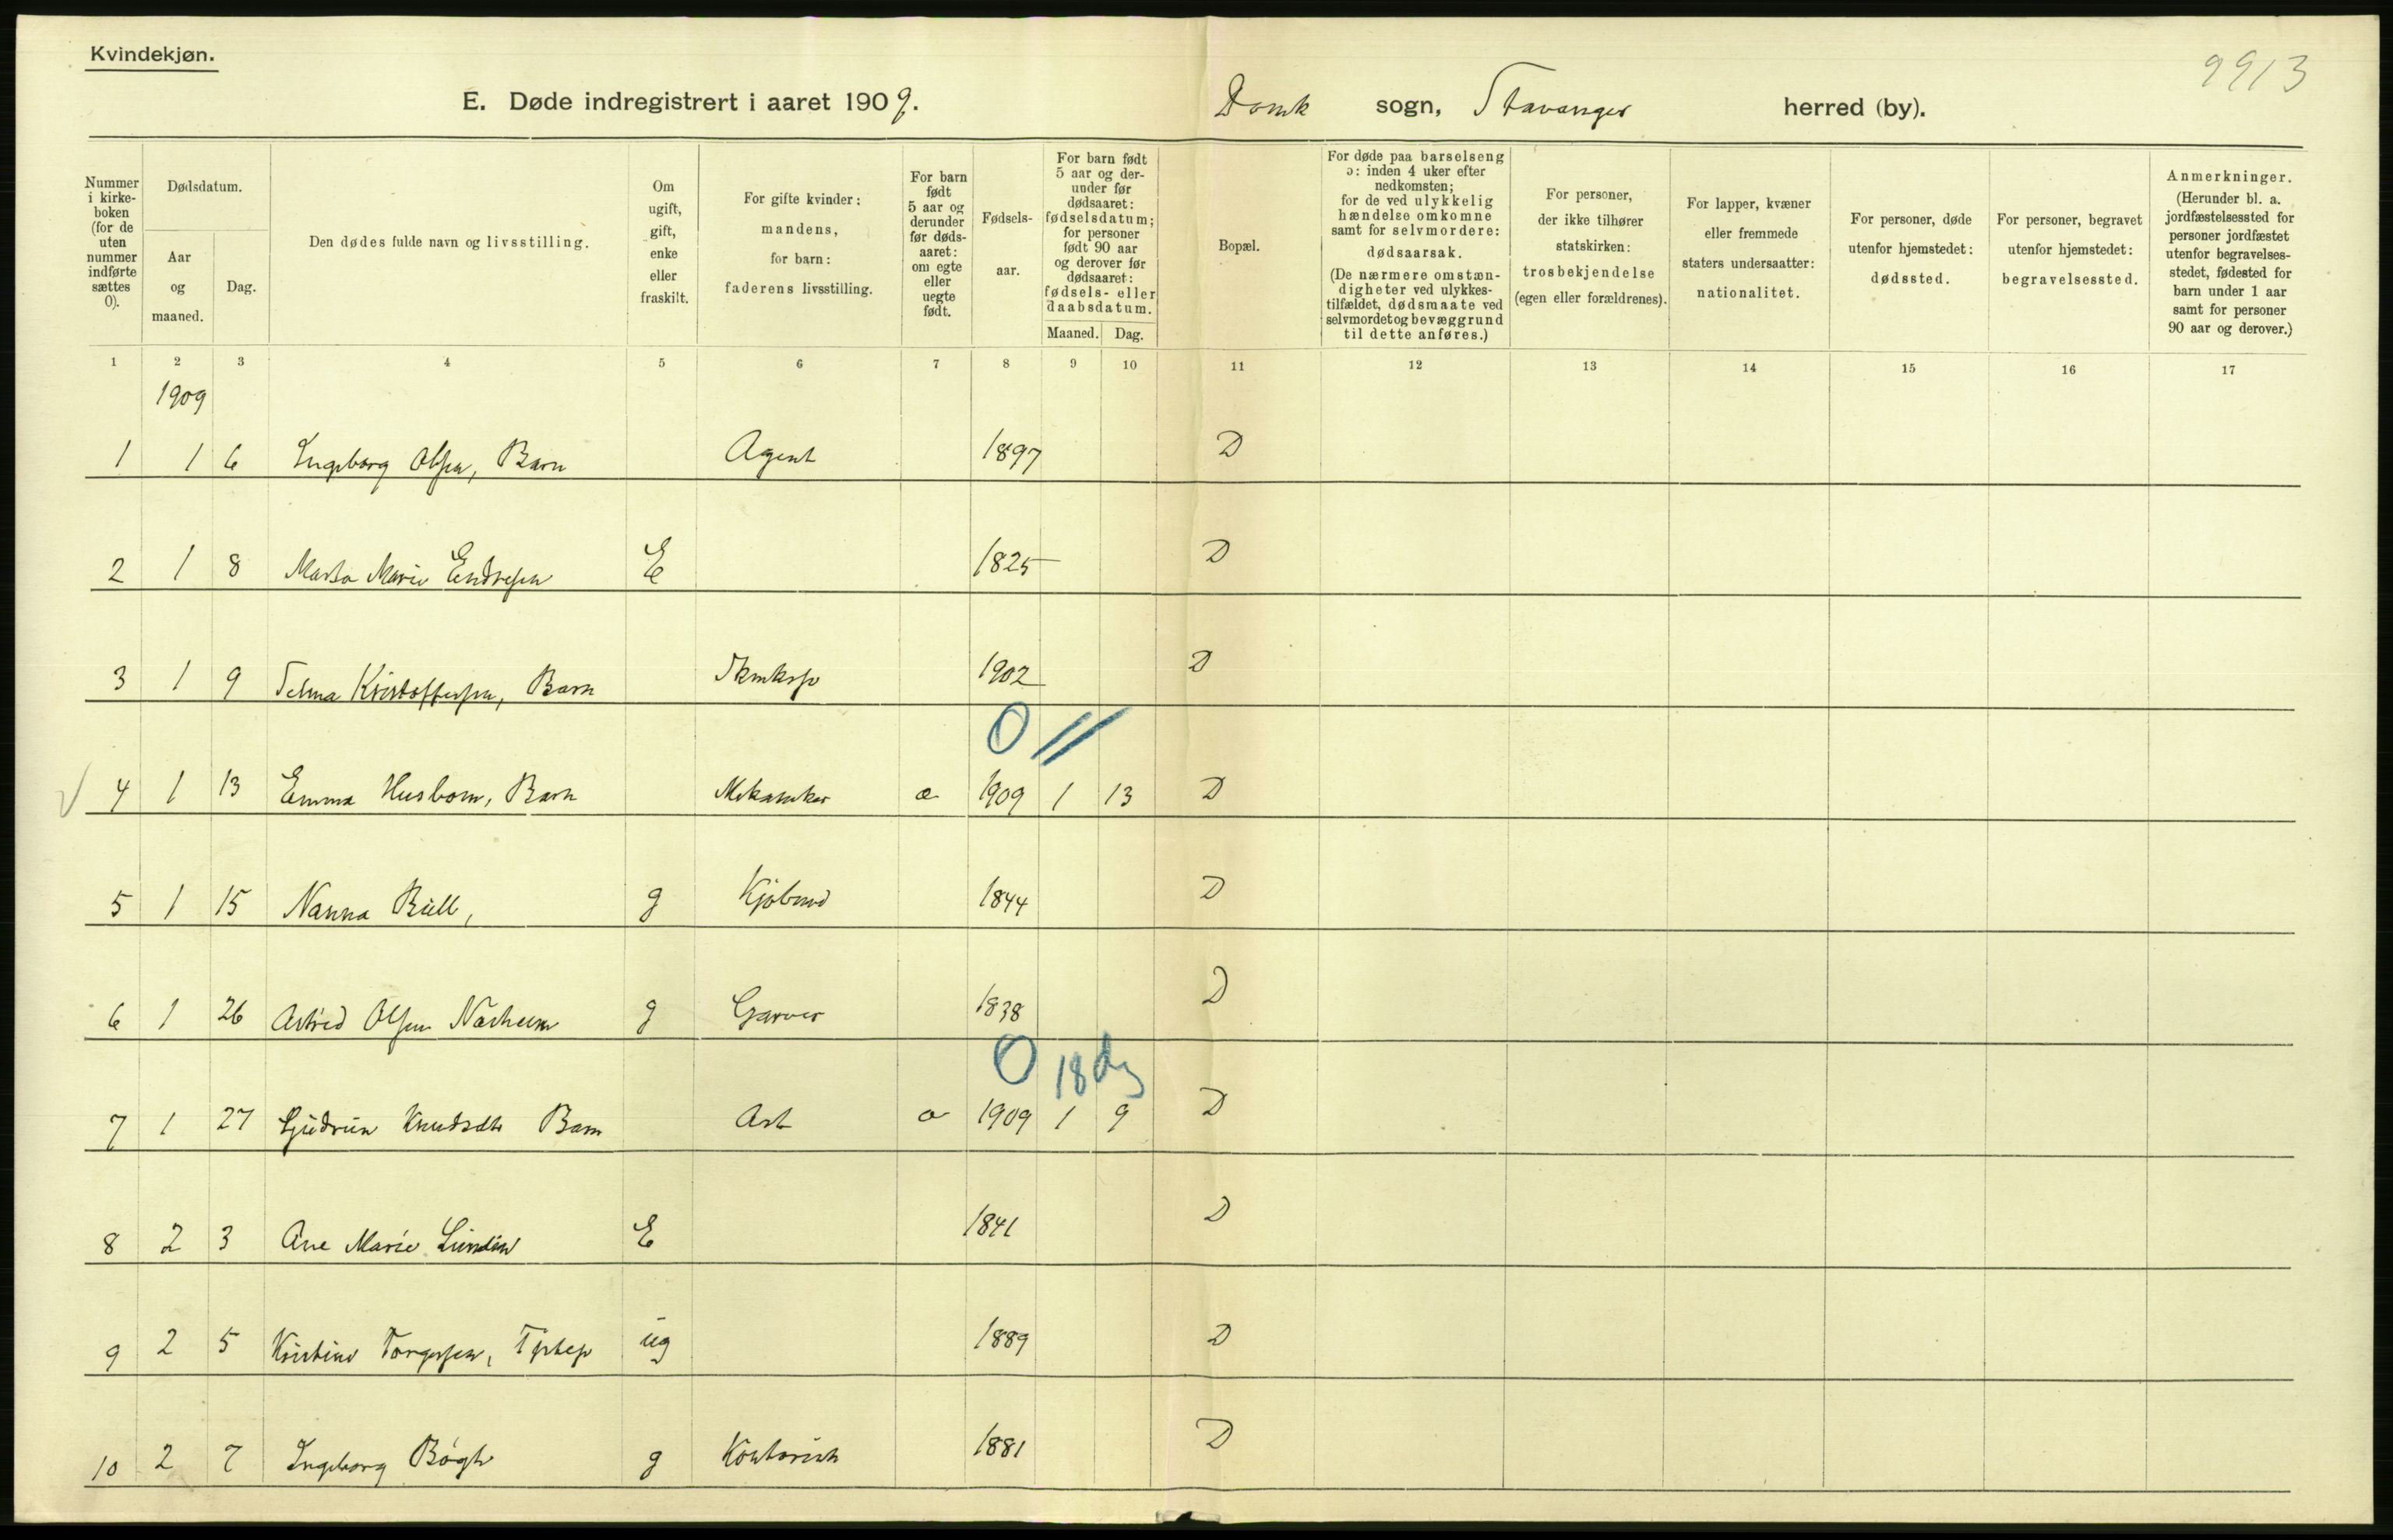 Kvindekjøn.
9913
E. Døde indregistrert i aaret 1909.
Domk sogn, Stavanger herred (by).
Nummer i kirke-boken (for de uten nummer indførte sættes 0).
Dødsdatum.
Aar og maaned.
Dag.
Den dødes fulde navn og livsstilling.
Om ugift, gift, enke eller fraskilt.
For gifte kvinder: mandens, for barn: faderens livsstilling.
For barn født 5 aar og derunder før døds-aaret: om egte eller uegte født.
Fødsels-aar.
For barn født 5 aar og der-under før dødsaaret: fødselsdatum; for personer født 90 aar og derover før dødsaaret: fødsels- eller daabsdatum.
Maaned. Dag.
Bopæl.
For døde paa barselseng ɔ: inden 4 uker efter nedkomsten; for de ved ulykkelig hændelse omkomne samt for selvmordere: dødsaarsak. (De nærmere omstæn-digheter ved ulykkes-tilfældet, dødsmaate ved selvmordet og bevæggrund til dette anføres.)
For personer, der ikke tilhører statskirken: trosbekjendelse (egen eller forældrenes).
For lapper, kvæner eller fremmede staters undersaatter: nationalitet.
For personer, døde utenfor hjemstedet: dødssted.
For personer, begravet utenfor hjemstedet: begravelsessted.
Anmerkninger. (Herunder bl. a. jordfæstelsessted for personer jordfæstet utenfor begravelses-stedet, fødested for barn under 1 aar samt for personer 90 aar og derover.)
1 2 3 4 5 6 7 8 9 10 11 12 13 14 15 16 17
1909
1 1 6 Ingeborg Olsen, Barn Agent 1897 D
2 1 8 Marta Marie Endresen E 1825 D
3 1 9 Selma Kristoffersen, Barn 1902 D
0 //
4 1 13 Emma Husbom, Barn Mekaniker æ 1909 1 13 D
5 1 15 Nanna Bull, g Kjøbmd 1844 D
6 1 26 Astrid Olsen Næsheim g Garver 1838 D
0 18 dg
7 1 27 Gudrun Knudsdtr Barn Arb 1909 1 9 D
8 2 3 Ane Marie Lundin E 1841 D
9 2 5 Kristine Torgersen, ug 1889 D
10 2 7 Ingeborg Bøgh g Kontorist 1881 D